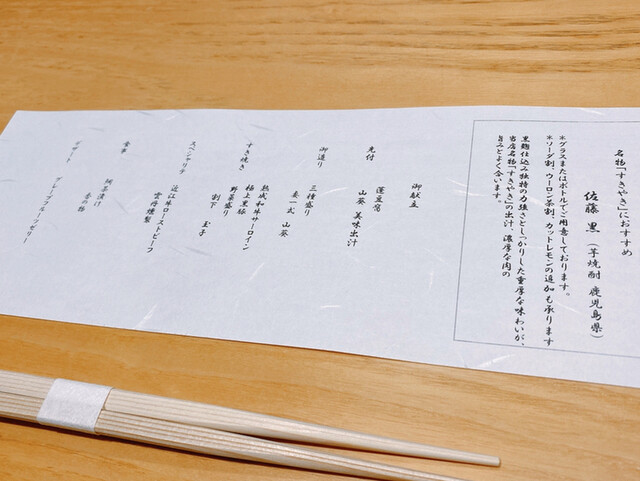 名物「すきやき」におすすめ
佐藤 黒（芋焼酎 鹿児島県）
※グラスまたはボトルでご用意しております。
※ソーダ割、ウーロン茶割、カットレモンの追加も承ります
黒麹仕込み独特の力強さとしっかりした重厚な味わいが、
当店名物「すきやき」の出汁、濃厚な肉の
旨みとよく合います。
御献立
先付
蓮豆腐
山葵 美味出汁
御造り
三種盛り
妻一式 山葵
すき焼き
熟成和牛サーロイン
極上黒豚
野菜盛り
割下 玉子
スペシャリテ
近江牛ローストビーフ
雲丹燻製
食事
桐茶漬け
香の物
デザート
グレープフルーツゼリー